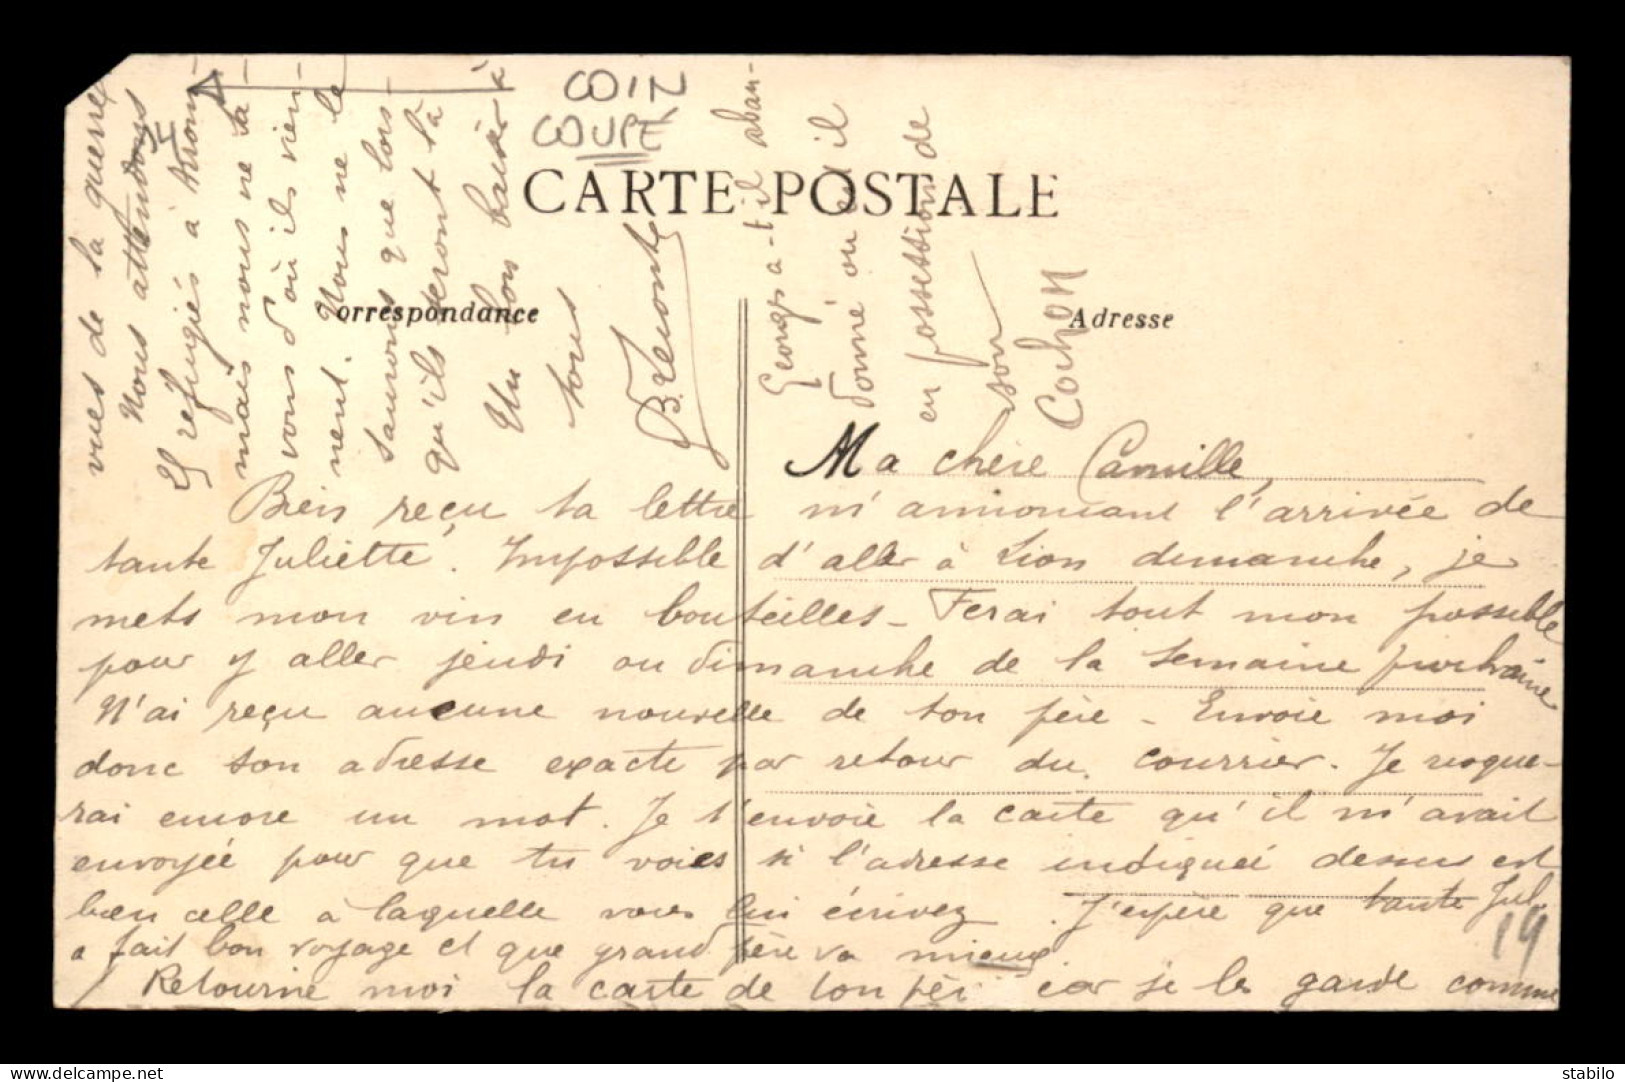 COIN
COUPÉ
CARTE POSTALE
Correspondance
Adresse
Ma chère Camille,
Bien reçu ta lettre m'annonçant l'arrivée de
tante Juliette. Impossible d'aller à Lion dimanche, je
mets mon vin en bouteilles - Ferai tout mon possible
pour y aller jeudi ou dimanche de la semaine prochaine
N'ai reçu aucune nouvelle de ton père - Envoie moi
donc son adresse exacte par retour du courrier. Je risque-
rai encore un mot. Je t'envoie la carte qu'il m'avait
envoyée pour que tu voies si l'adresse indiquée dessus est
bien celle à laquelle vous lui écrivez. J'espère que tante Jul.
a fait bon voyage et que grand père va mieux.
Retourne moi la carte de ton père car je les garde comme
vues de la guerre
Nous attendons
25 réfugiés à
mais nous ne sa-
vons d'où ils vien-
nent. Nous ne le
saurons que lors-
qu'ils seront là
Un bon baiser à
tous
Georges a-t-il aban-
donné ou est il
en possession de
son
Cochon
19
www.delcampe.net
stabilo